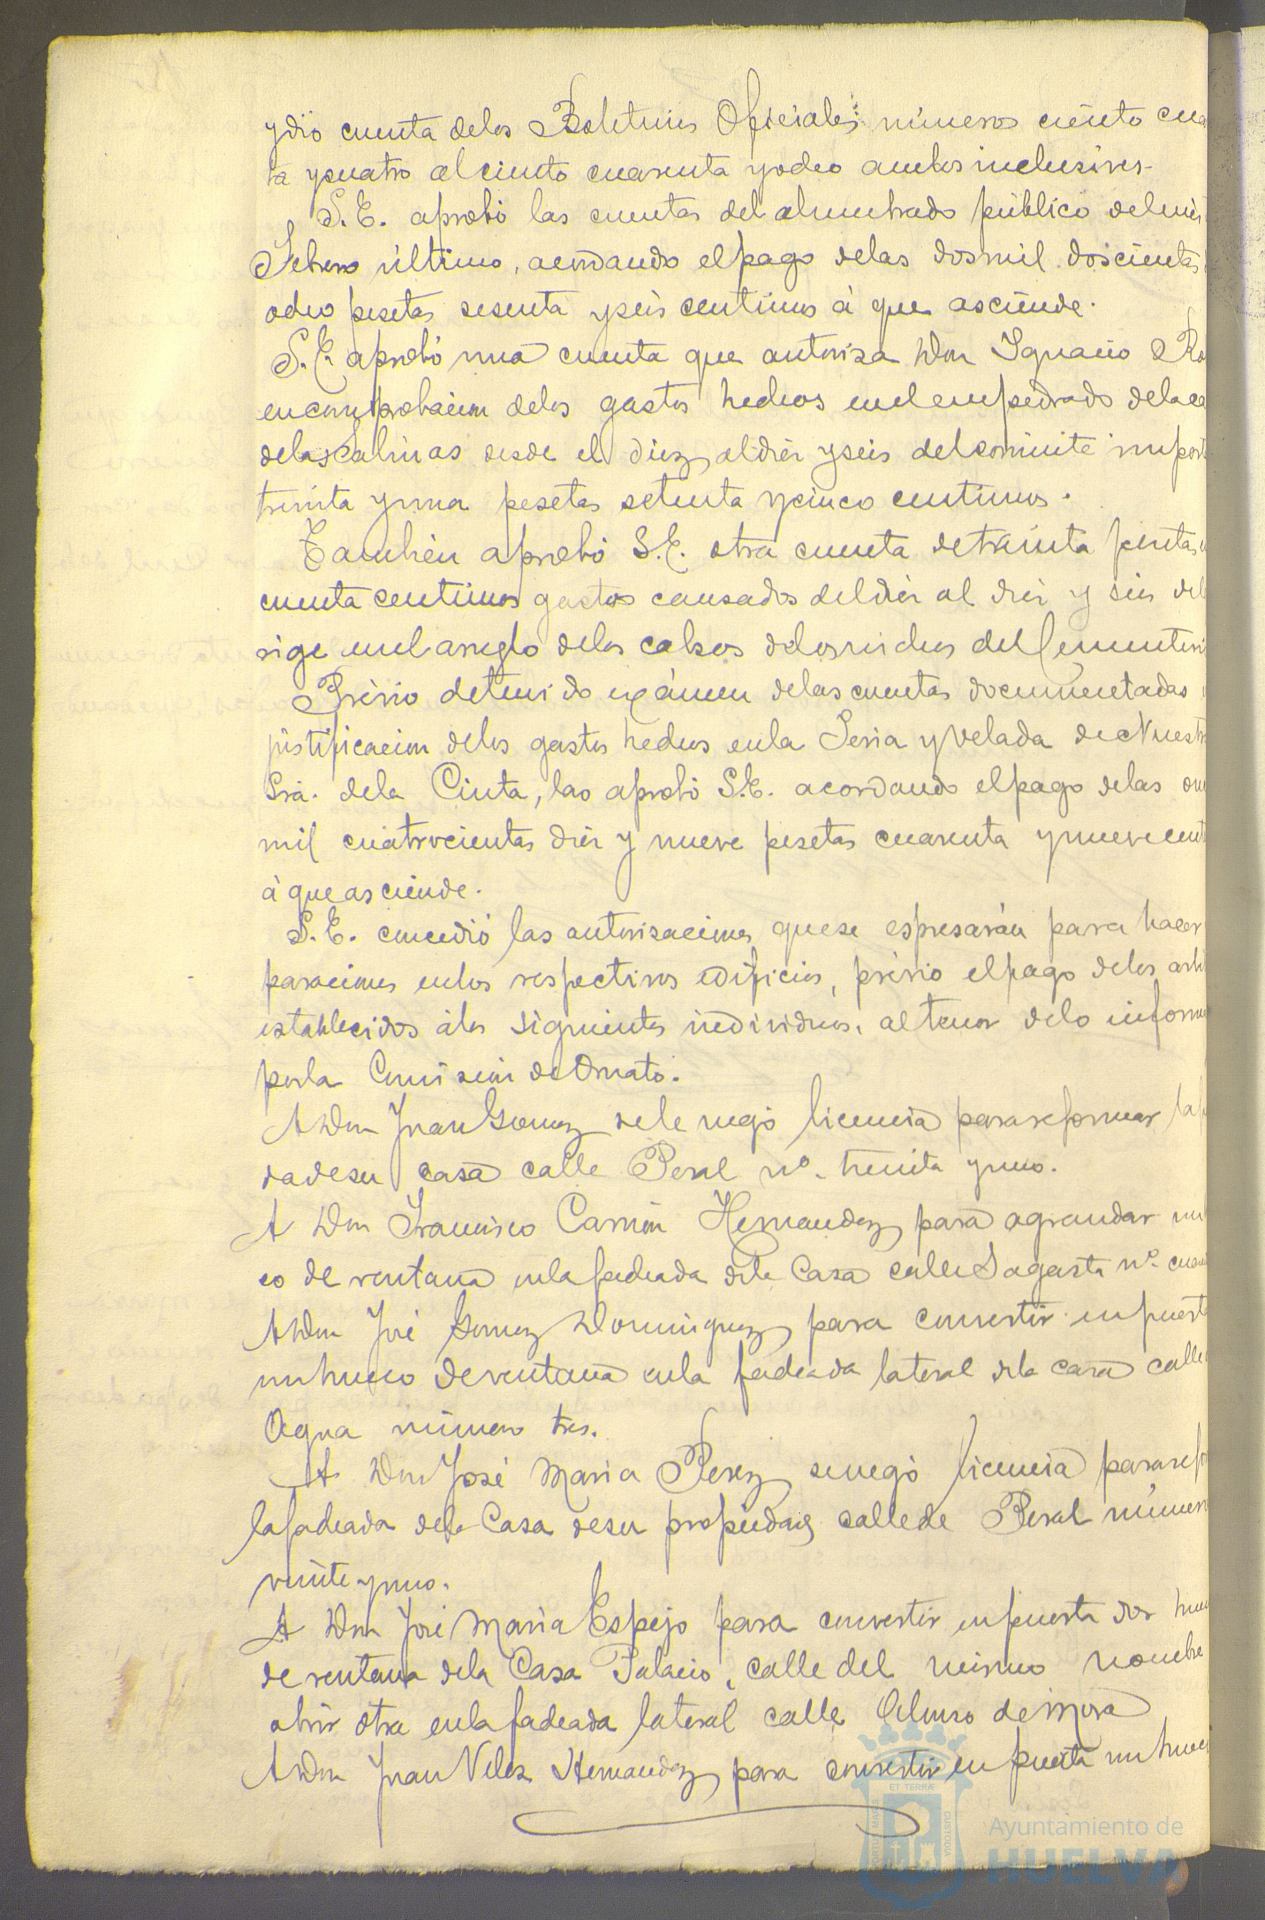 y dió cuenta de los Boletines Oficiales números ciento cua
ta y cuatro al ciento cuarenta y ocho ambos inclusives.
S.E. aprobó las cuentas del alumbrado público del mes
Febrero último, acordando el pago de las dos mil doscientas
ocho pesetas sesenta y seis centimos á que asciende.
S.E. aprobó una cuenta que autoriza Don Ignacio
en comprobacion de los gastos hechos en el empedrado de la ca
de las Salinas desde el diez al diez y seis del corriente import
treinta y una pesetas setenta y cinco centimos.
Tambien aprobó S.E. otra cuenta de treinta pesetas
cuenta centimos gastos causados del diez al diez y seis del
rige en el arreglo de los calsos de los nichos del Cementeri
Prévio detenido exámen de las cuentas documentadas
justificacion de los gastos hechos en la Feria y Velada de Nuestr
Sra. de la Cinta, las aprobó S.E. acordando el pago de las on
mil cuatrocientas diez y nueve pesetas cuarenta y nueve cent
á que asciende.
S.E. concedió las autorizaciones que se espresarán para hacer
paraciones en los respectivos edificios, prévio el pago de los arbi
establecidos á los siguientes individuos, al tenor de lo inform
por la Comision de Ornato.
A Don Juan Gomez se le negó licencia para reformar la f
da de su casa calle Peral nº. treinta y uno.
A Don Francisco Carrión Hernandez para agrandar un
co de ventana en la fachada de la Casa calle Sagasta nº. cua
A Don José Gomez Dominguez para convertir en puerta
un hueco de ventana en la fachada lateral de la casa calle
Agua número tres.
A Don José Maria Perez se negó licencia para ref
la fachada de la Casa de su propiedad calle de Peral número
veinte y uno.
A Don José Maria Espejo para convertir en puerta dos hue
de ventana de la Casa Palacio, calle del mismo nombre
abrir otra en la fachada lateral calle Alonso de Mora
A Don Juan Velez Hernandez para convertir en puerta un huec
ET TERRÆ
PORTUS MARIS
CUSTODIA
Ayuntamiento de
HUELVA